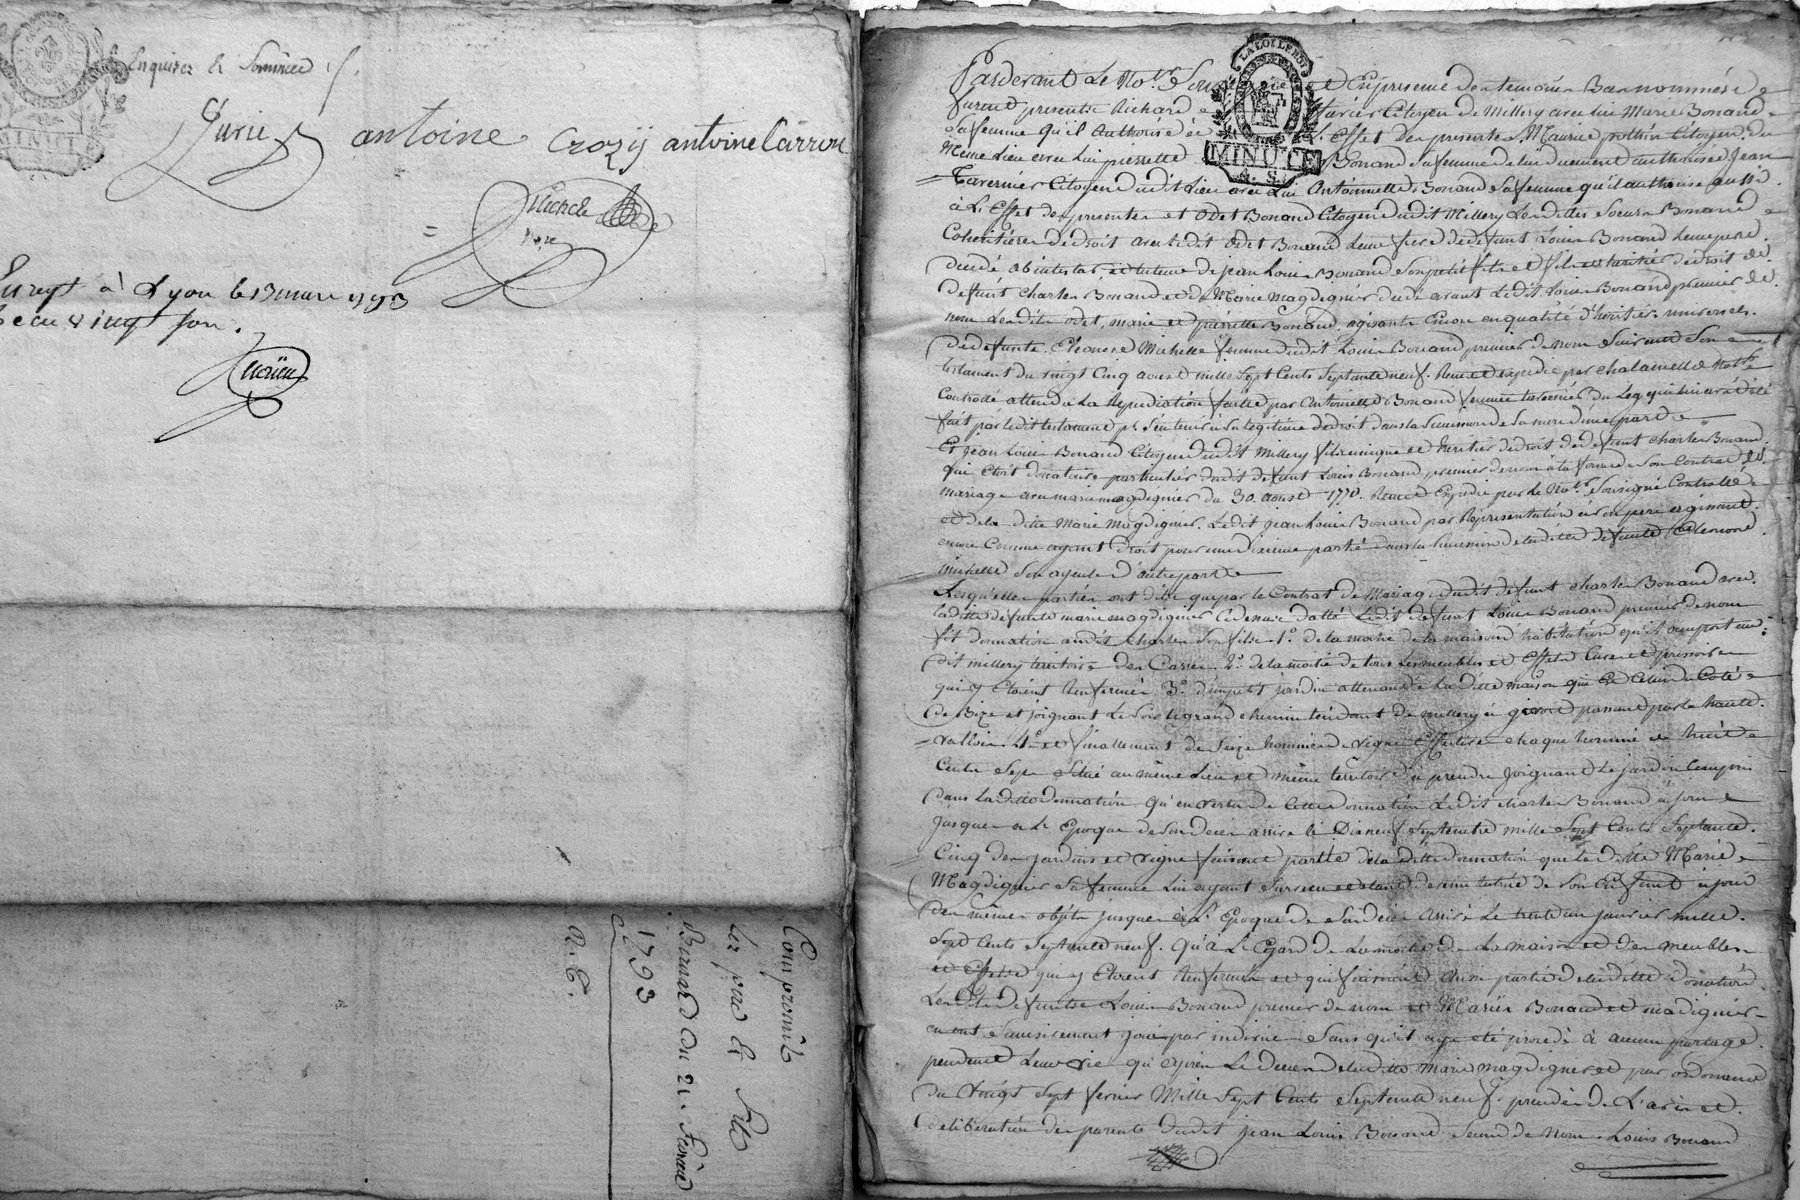 Enquises & Sommées
MINUTE
Jurie antoine Crozy antoine Carron
Michele
Enregt à Lyon le 13 mars 1793
vingt sou.
Compromis
1793
LA LOI LE ROI
MINUTE
Pardevant Le Notre Sous Et En presence des temoins Bas nommés
furent presents Richard Citoyen de Millery avec lui Marie Bonand
Sa femme qu'il authorise à L'Effet des presentes, Maurice pothin Citoyen du
Meme Lieu avec Lui pierrette Bonand Sa femme de lui duement authorisée Jean
Tavernier Citoyen dudit Lieu avec Lui Antoinette Bonand Sa femme qu'il authorise aussi
à L'Effet des presentes et Odet Bonand Citoyen dudit Millery Lesdittes Soeurs Bonand
Coheritieres de droit avec ledit Odet Bonand leur frere de defunt Louis Bonand leur pere
decedé abintestat, et tuteur de jean Louis Bonand Son petit fils et fils et heritier de droit de
defunt Charles Bonand et de Marie Magdignier decedé avant Ledit Louis Bonand premier de
nom Lesdits odet, marie et pierrette Bonand, agissants Encore en qualité d'heritiers universels
de defunte Eleonore Michelle femme dudit Louis Bonand premier de nom Suivant Son
testament du vingt Cinq aoust mille Sept Cents Septante neuf. Reçu et expedié par Chalamelle Notre
Controllé attendu La Repudiation faitte par Antoinette Bonand femme tavernier du Legs
fait par ledit testament pr. S'en tenir à Sa Legitime de droit dans la Succession de Sa mere d'une part
Et jean Louis Bonand Citoyen dudit Millery fils unique et heritier de droit de defunt Charles Bonand
qui Etoit donataire particulier dudit defunt Louis Bonand premier de nom à la forme de Son Contrat de
mariage avec marie magdignier du 30. aoust 1770. Reçu et Expedié par le Notre Sousigné Controllé
et de la ditte Marie Magdignier. Ledit jean Louis Bonand par Representation de Son pere agissant
encore Comme ayant droit pour une dixieme partie dans la Succession de laditte defunte Eleonore
michelle Son ayeule d'autre part
Lesquelles parties ont dit que par le Contrat de Mariage dudit defunt Charles Bonand avec
laditte defunte marie magdignier Cidevant datté Ledit defunt Louis Bonand premier de nom
fit donnation audit Charles Son fils 1°. de la moitié de la maison d'habitation qu'il occupoit au
dit millery territoire des Carres. 2°. de la moitié de tous Les meubles et Effets Cuve et pressoir
qui y Etoient Renfermés 3°. d'un petit jardin attenant à La ditte maison qui Est Celui du Coté
de Bize et joignant Le Soir le grand chemin tendant de millery à givors passant par la haute
valloir. 4°. et finallement de Seize hommées de vigne Effective chaque hommée de huit
Cents Seps Situé au même Lieu et même territoire à prendre joignant Le jardin Compris
dans Laditte donnation. qu'en vertu de Cette donnation Ledit charles Bonand a joui
jusques a L'Epoque de Son deces arrivé le Dixneuf Septembre mille Sept Cents Septante
Cinq des jardins et vigne faisant partie de la ditte donnation que la ditte Marie
Magdignier Sa femme Lui ayant Survecu et etant devenu tutrice de Son Enfant a joui
des mêmes objets jusques à L'Epoque de Son deces arrivé Le trente un janvier mille
Sept Cents Septante neuf. Qu'à L'Egard de La moitié de La maison et des meubles
et Effets qui y Etoient Renfermés et qui faisoient aussi partie de laditte donation
Lesdits defunts Louis Bonand premier de nom et Mariés Bonand et magdignier
en ont Successivement joui par indivis Sans qu'il aye eté procedé à aucun partage
pendant Leur vie qu'après Le deces de laditte marie magdignier et par ordonnance
du vingt Sept fevrier Mille Sept Cents Septante neuf. precedée de L'avis et
deliberation des parents dudit jean Louis Bonand Second de Nom. Louis Bonand